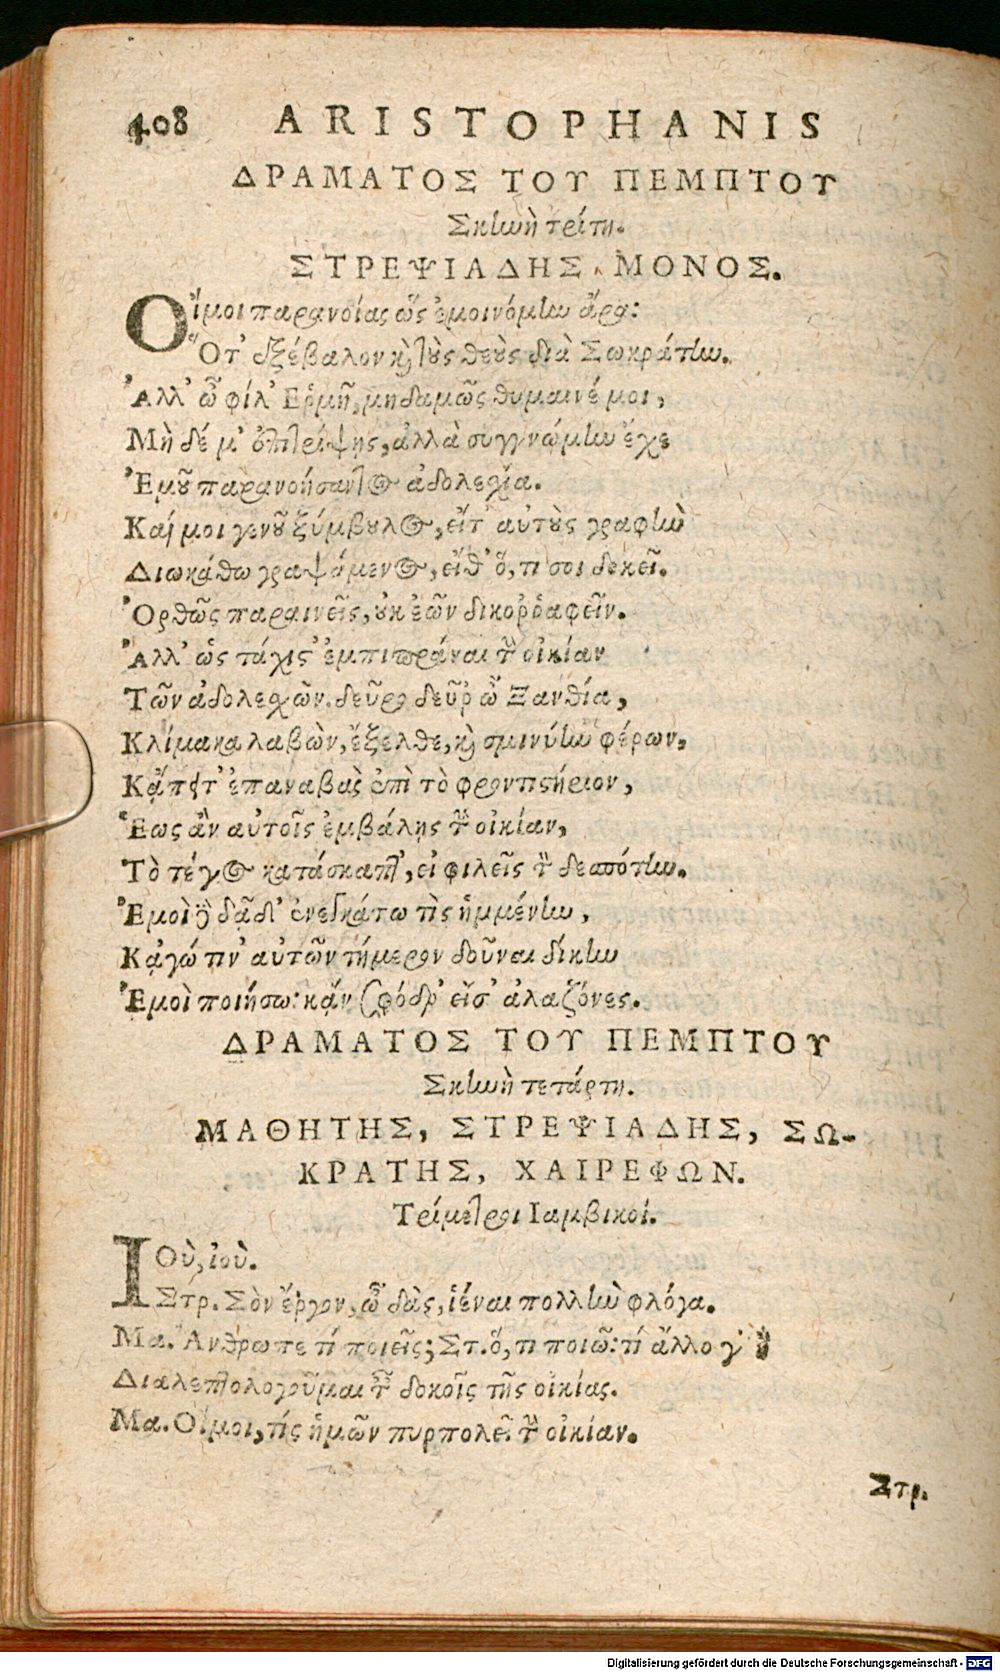 408 ARISTOPHANIS
ΔΡΑΜΑΤΟΣ ΤΟΥ ΠΕΜΠΤΟΥ
Σκηνὴ τρίτη.
ΣΤΡΕΨΙΑΔΗΣ ΜΟΝΟΣ.
Οἴμοι παρανοίας ὡς ἐμαινόμην ἄρα:
Ὅτ' ἐξέβαλον καὶ τοὺς θεοὺς διὰ Σωκράτην.
Ἀλλ' ὦ φίλ' Ἑρμῆ, μηδαμῶς θύμαινέ μοι,
Μὴ δέ μ' ἐπιτρίψῃς, ἀλλὰ συγγνώμην ἔχε
Ἐμοῦ παρανοήσαντος ἀδολεχίᾳ.
Καί μοι γενοῦ ξύμβουλος, εἴτ' αὐτοὺς γραφὴν
Διωκάθω γραψάμενος, εἴθ' ὅ, τι σοι δοκεῖ.
Ὀρθῶς παραινεῖς, οὐκ ἐῶν δικορῥαφεῖν.
Ἀλλ' ὡς τάχιστ' ἐμπιπράναι τὴν οἰκίαν
Τῶν ἀδολεχῶν. δεῦρο δεῦρ' ὦ Ξανθία,
Κλίμακα λαβὼν, ἔξελθε, καὶ σμινύην φέρων.
Κᾄπειτ' ἐπαναβὰς ἐπὶ τὸ φροντιστήριον,
Ἕως ἂν αὐτοῖς ἐμβάλῃς τὴν οἰκίαν,
Τὸ τέγος κατάσκαπτ', εἰ φιλεῖς τὸν δεσπότην.
Ἐμοὶ δὲ δᾷδ' ἐνεγκάτω τὶς ἡμμένην,
Κᾀγώ τιν' αὐτῶν τήμερον δοῦναι δίκην
Ἐμοὶ ποιήσω: κἄν σφόδρ' εἰσ' ἀλαζόνες.
ΔΡΑΜΑΤΟΣ ΤΟΥ ΠΕΜΠΤΟΥ
Σκηνὴ τετάρτη.
ΜΑΘΗΤΗΣ, ΣΤΡΕΨΙΑΔΗΣ, ΣΩ-
ΚΡΑΤΗΣ, ΧΑΙΡΕΦΩΝ.
Τρίμετροι Ιαμβικοί.
ΙΟὺ, ἰού.
Στρ. Σὸν ἔργον, ὦ δὰς, ἱέναι πολλὴν φλόγα.
Μα. Ἄνθρωπε τί ποιεῖς; Στ. ὅ, τι ποιῶ: τί ἄλλο γ' ἢ
Διαλεπτολογοῦμαι ταῖς δοκοῖς τῆς οἰκίας.
Μα. Οἴμοι, τίς ἡμῶν πυρπολεῖ τὴν οἰκίαν.
Στρ.
Digitalisierung gefördert durch die Deutsche Forschungsgemeinschaft - DFG